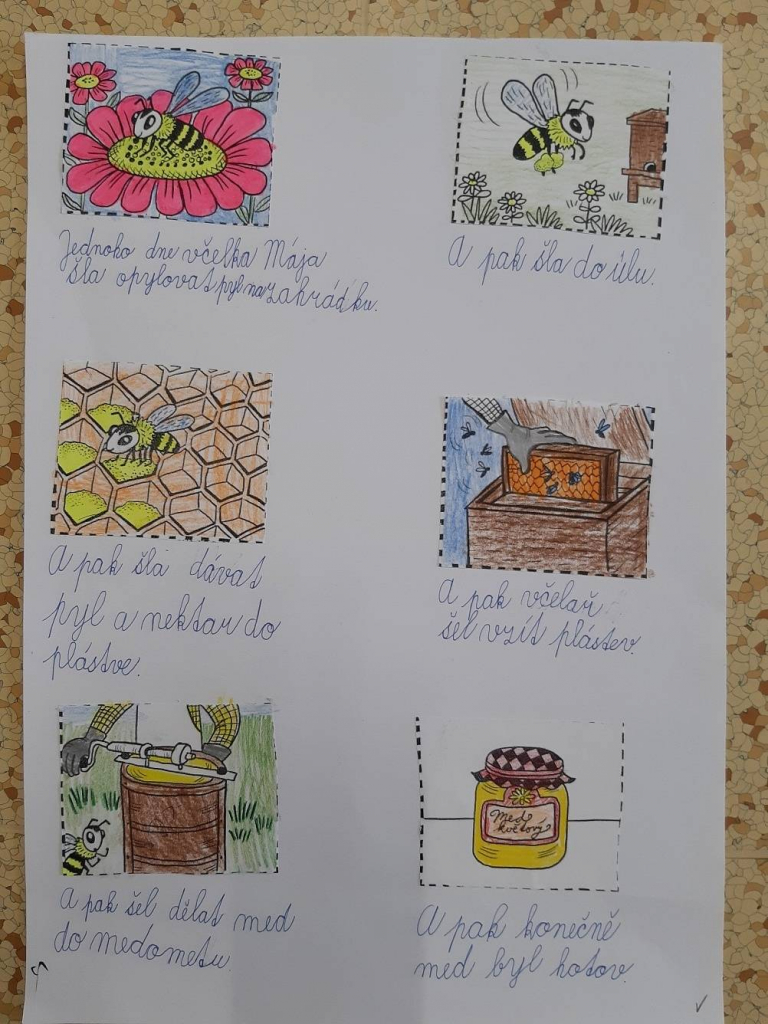 Jednoho dne včelka Mája
šla opylovat pyl na zahrádku.
A pak šla do úlu.
A pak šla dávat
pyl a nektar do
plástve.
A pak včelař
šel vzít plástev.
A pak šel dělat med
do medometu.
Med
květový
A pak konečně
med byl hotov.